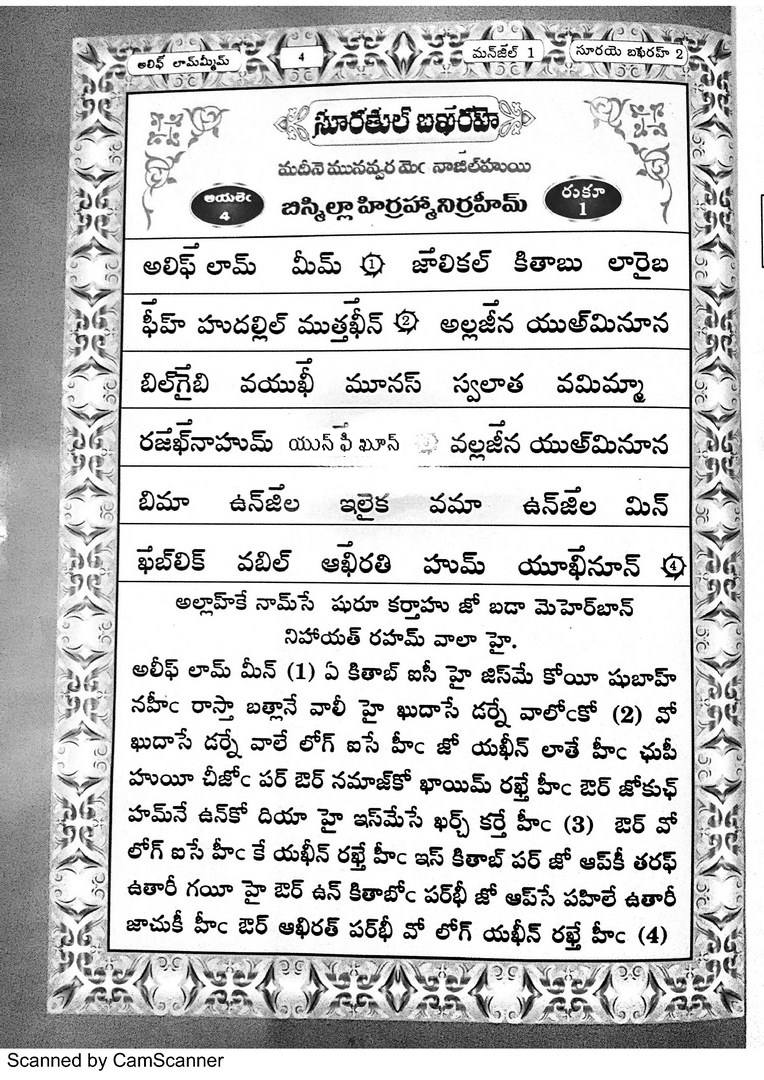 అలిఫ్ లామ్‌మ్మీమ్ 4 మన్‌జిల్ 1 సూరయె బఖరహ్ 2
సూరతుల్ బఖరహ్
మదీనె మునవ్వర మెఁ నాజిల్‌హుయి
ఆయతెఁ 4 బిస్మిల్లా హిర్రహ్మానిర్రహీమ్ రుకూ 1
అలిఫ్ లామ్ మీమ్ 1 జాలికల్ కితాబు లారైబ
ఫీహ్ హుదల్లిల్ ముత్తఖీన్ 2 అల్లజీన యుఅ్‌మినూన
బిల్‌గైబి వయుఖీ మూనస్ స్వలాత వమిమ్మా
రజఖ్‌నాహుమ్ యున్ ఫి ఖూన్ 3 వల్లజీన యుఅ్‌మినూన
బిమా ఉన్‌జిల ఇలైక వమా ఉన్‌జిల మిన్
ఖబ్‌లిక్ వబిల్ ఆఖిరతి హుమ్ యూఖినూన్ 4
అల్లాహ్‌కే నామ్‌సే షురూ కర్తాహు జో బడా మెహెర్‌బాన్
నిహాయత్ రహమ్ వాలా హై.
అలీఫ్ లామ్ మీన్ (1) ఏ కితాబ్ ఐసీ హై జిస్‌మే కోయీ షుబాహ్
నహీఁ రాస్తా బత్లానే వాలీ హై ఖుదాసే డర్నే వాలోఁకో (2) వో
ఖుదాసే డర్నే వాలే లోగ్ ఐసే హీఁ జో యఖీన్ లాతే హీఁ ఛుపీ
హుయీ చీజోఁ పర్ ఔర్ నమాజ్‌కో ఖాయిమ్ రఖ్తే హీఁ ఔర్ జోకుఛ్
హమ్‌నే ఉన్‌కో దియా హై ఇస్‌మేసే ఖర్చ్ కర్తే హీఁ (3) ఔర్ వో
లోగ్ ఐసే హీఁ కే యఖీన్ రఖ్తే హీఁ ఇస్ కితాబ్ పర్ జో ఆప్‌కీ తరఫ్
ఉతారీ గయీ హై ఔర్ ఉన్ కితాబోఁ పర్‌భీ జో ఆప్‌సే పహిలే ఉతారీ
జాచుకీ హీఁ ఔర్ ఆఖిరత్ పర్‌భీ వో లోగ్ యఖీన్ రఖ్తే హీఁ (4)
Scanned by CamScanner